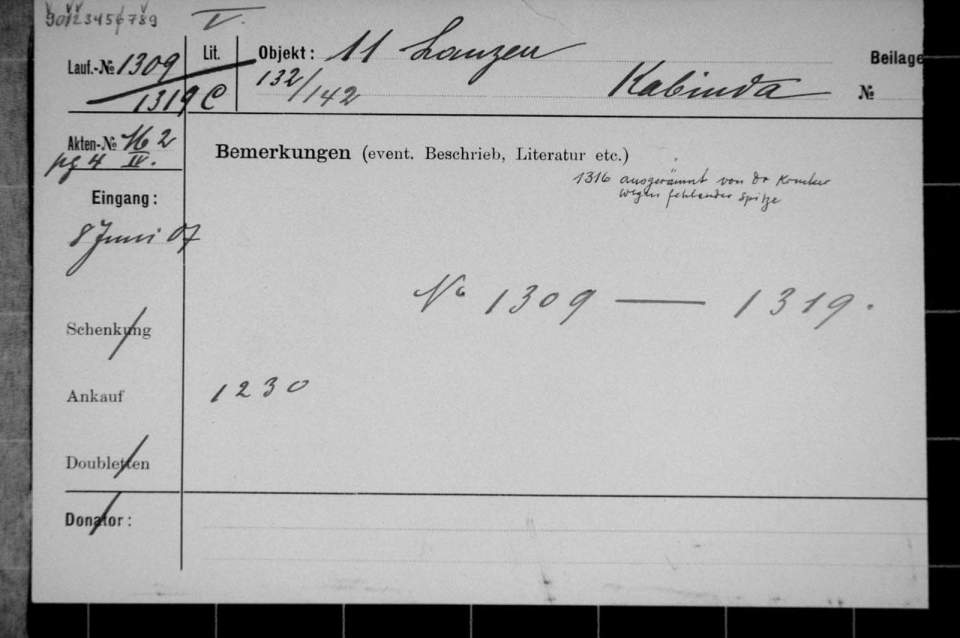 90123456789 V.
Lauf.-№ 1309 Lit. Objekt: 11 Lanzen Beilage
1319 C 132/142 Kabinda №
Akten-№ 16 2
pg 4 IV.
Bemerkungen (event. Beschrieb, Literatur etc.)
1316 ausgeräumt von Dr
wegen fehlender Spitze
Eingang:
8 Juni 07
No 1309 — 1319.
Schenkung
Ankauf 1230
Doubletten
Donator: